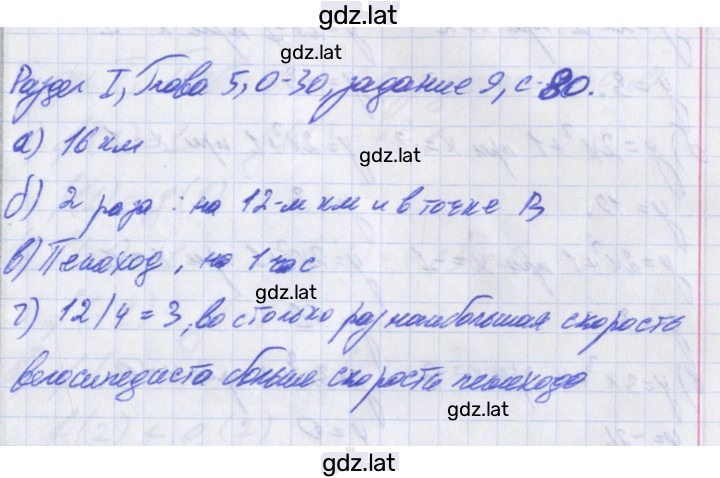 gdz.lat
gdz.lat
Раздел I, Глава 5, О-30, задание 9, с-80.
а) 16 км
gdz.lat
б) 2 раза : на 12-м км и в точке В
в) Пешоход, на 1 час
gdz.lat
г) 12/4 = 3, во столько раз наибольшая скорость
велосипедиста больше скорости пешехода
gdz.lat
gdz.lat